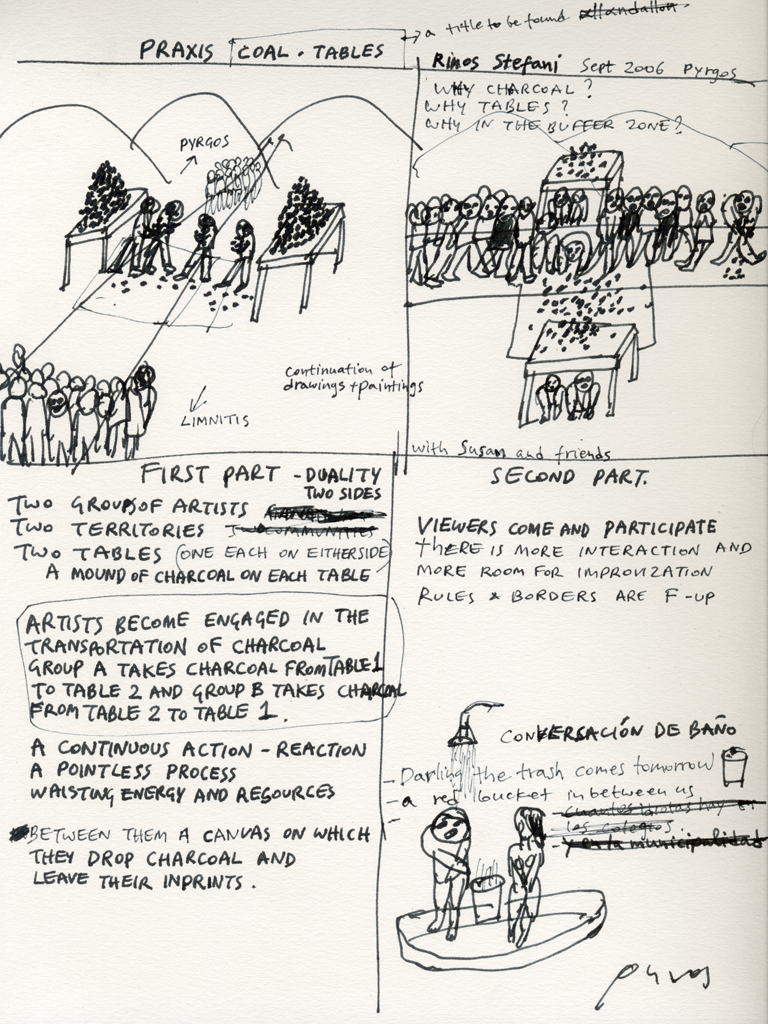 a title to be found
PRAXIS COAL • TABLES
Rinos Stefani Sept 2006 Pyrgos
WHY CHARCOAL?
WHY TABLES?
WHY IN THE BUFFER ZONE?
PYRGOS
continuation of
drawings + paintings
LIMNITIS
with Susan and friends
FIRST PART - DUALITY
TWO SIDES
TWO GROUPS OF ARTISTS
TWO TERRITORIES
TWO TABLES (ONE EACH ON EITHERSIDE)
A MOUND OF CHARCOAL ON EACH TABLE
ARTISTS BECOME ENGAGED IN THE
TRANSPORTATION OF CHARCOAL
GROUP A TAKES CHARCOAL FROM TABLE 1
TO TABLE 2 AND GROUP B TAKES CHARCOAL
FROM TABLE 2 TO TABLE 1.
A CONTINUOUS ACTION - REACTION
A POINTLESS PROCESS
WAISTING ENERGY AND RESOURCES
BETWEEN THEM A CANVAS ON WHICH
THEY DROP CHARCOAL AND
LEAVE THEIR INPRINTS.
SECOND PART.
VIEWERS COME AND PARTICIPATE
THERE IS MORE INTERACTION AND
MORE ROOM FOR IMPROVIZATION
RULES & BORDERS ARE F-UP
CONVERSACIÓN DE BAÑO
- Darling the trash comes tomorrow
- a red bucket in between us
- cuantos idiotas hay en
los colegios
- y en la municipalidad